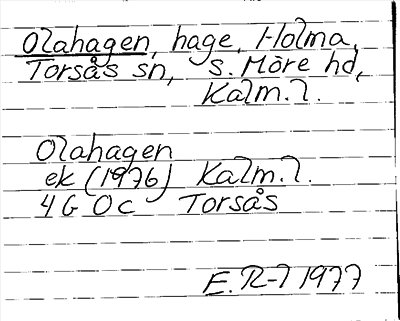 Olahagen, hage, Holma,
Torsås sn, S. Möre hd,
Kalm.l.
Olahagen
ek (1976) Kalm.l.
4G Oc Torsås
E.R-l 1977